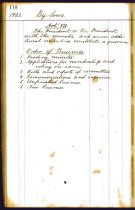 118
1922. By-laws.
Art. VII
The President or Vice Presidents
with the quorum and seven addi-
tional members constitute a quorum
Order of Business
1 Reading minutes
2 Applications for membership and
voting on same
3 Bills and reports of committees
4 Communications and
5 Unfinished business
6 New business